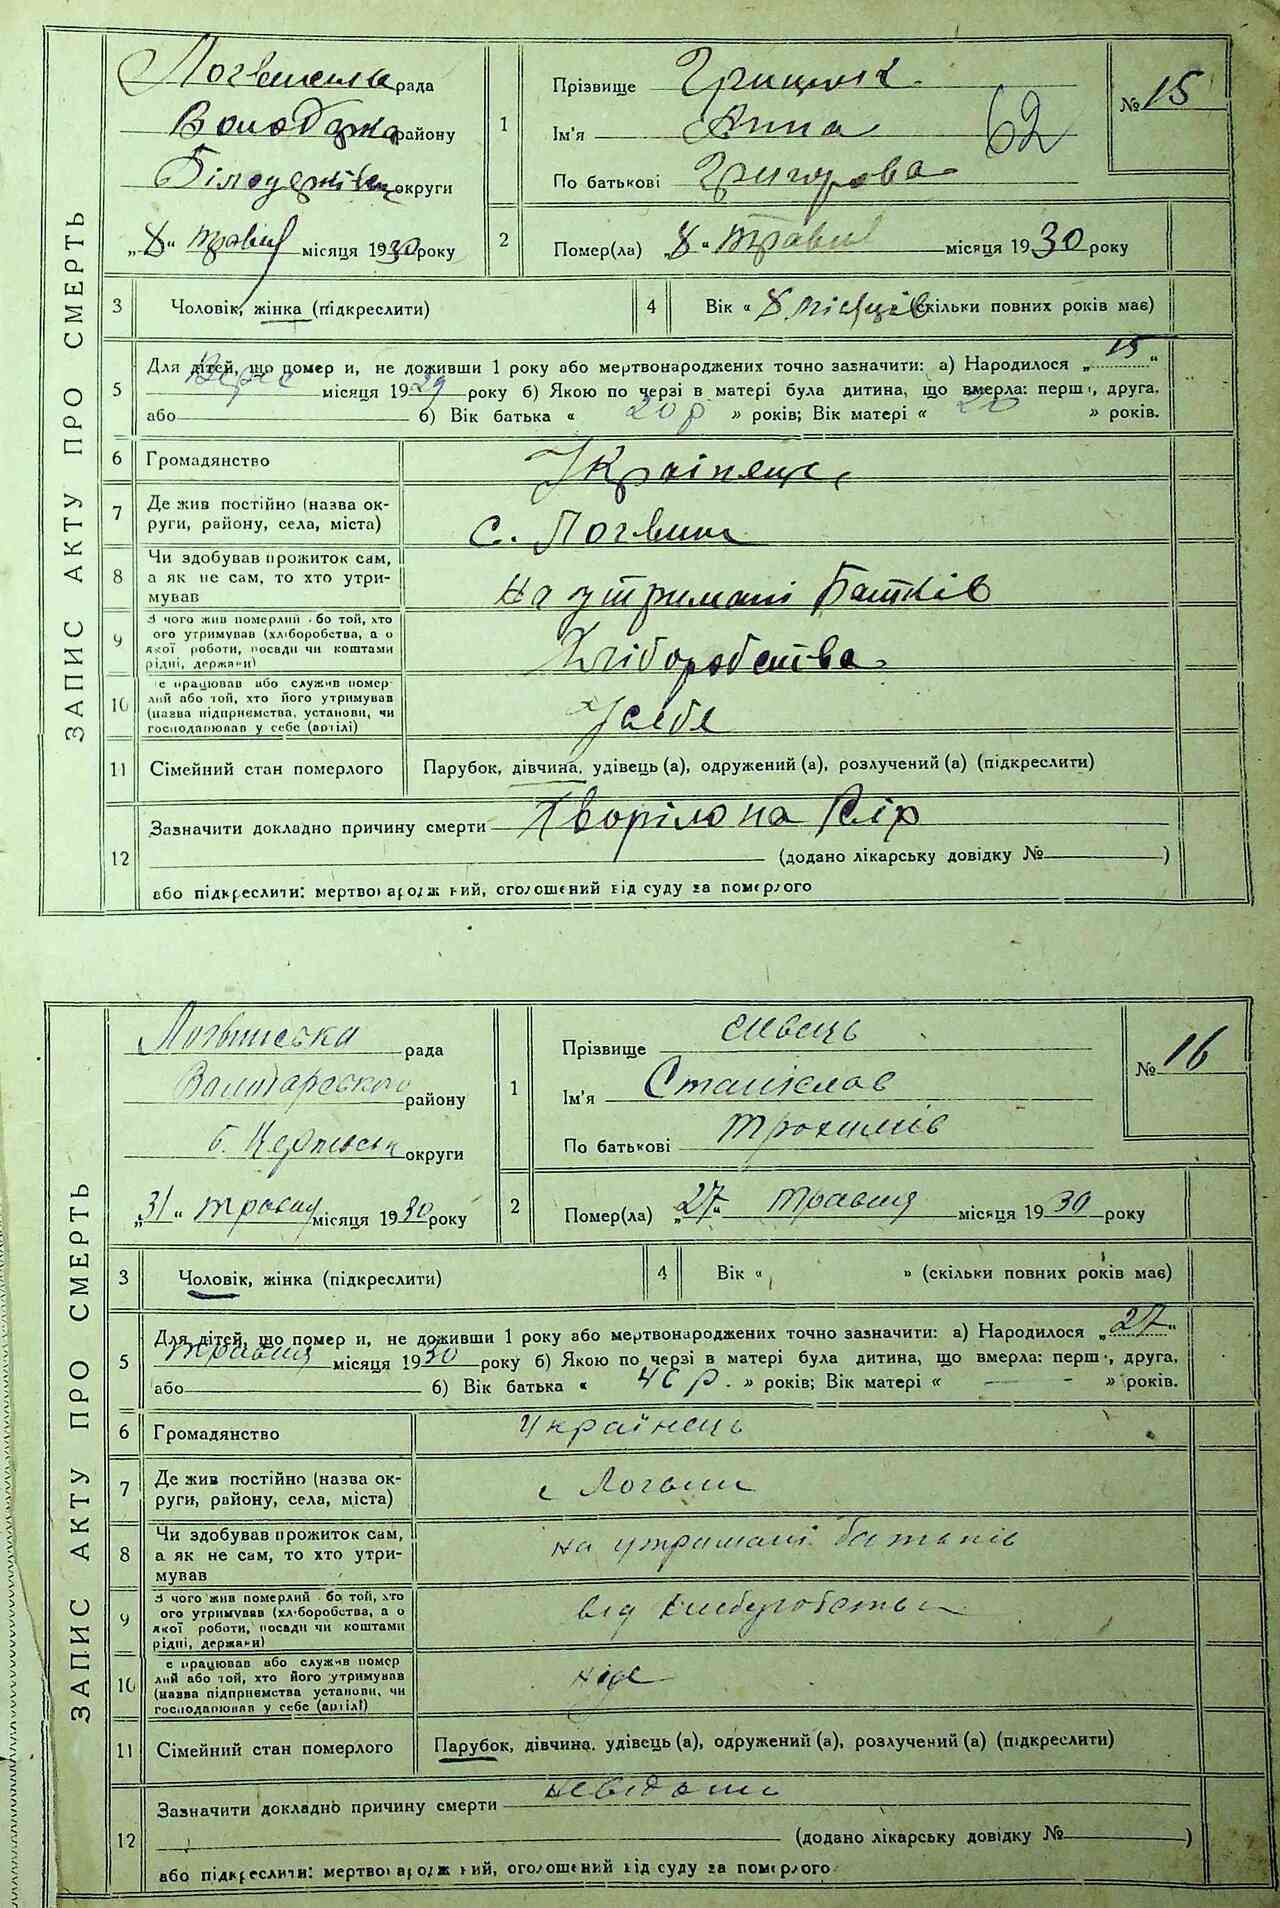 ЗАПИС АКТУ ПРО СМЕРТЬ
рада
району
округи
„8“ травня місяця 1930 року
1
Прізвище Грищук
Ім'я Анна
По батькові Григорова
62
№ 15
2
Помер(ла) „8“ травня місяця 1930 року
3
Чоловік, жінка (підкреслити)
4
Вік „8 місяців (скільки повних років має)
5
Для дітей, що помер и, не доживши 1 року або мертвонароджених точно зазначити: а) Народилося „15“
Верес місяця 1929 року б) Якою по черзі в матері була дитина, що вмерла: перш, друга.
або б) Вік батька « 20 р » років; Вік матері « 20 » років.
6
Громадянство
7
Де жив постійно (назва ок-
руги, району, села, міста)
с. Логвин
8
Чи здобував прожиток сам,
а як не сам, то хто утри-
мував
На утримані Батьків
9
З чого жив померлий бо той, хто
ого утримував (хліборобства, а о
якої роботи, посади чи коштами
рідні, держави)
Хліборобства
10
е працював або служив помер
лий або той, хто його утримував
(назва підприємства, установи, чи
господарював у себе (артілі)
У себе
11
Сімейний стан померлого
Парубок, дівчина, удівець (а), одружений (а), розлучений (а) (підкреслити)
12
Зазначити докладно причину смерти Хворіла на Кір
(додано лікарську довідку № )
або підкреслити: мертвонароджений, оголошений від суду за померлого
ЗАПИС АКТУ ПРО СМЕРТЬ
Логвинська рада
району
б. Церківськ округи
„31“ травня місяця 1930 року
1
Прізвище Швець
Ім'я Станіслав
По батькові Трохимів
№ 16
2
Помер(ла) „27“ травня місяця 1930 року
3
Чоловік, жінка (підкреслити)
4
Вік « » (скільки повних років має)
5
Для дітей, що помер и, не доживши 1 року або мертвонароджених точно зазначити: а) Народилося „27“
травня місяця 1930 року б) Якою по черзі в матері була дитина, що вмерла: перш, друга,
або б) Вік батька « 46 р. » років; Вік матері « — » років.
6
Громадянство
Українець
7
Де жив постійно (назва ок-
руги, району, села, міста)
с Логвин
8
Чи здобував прожиток сам,
а як не сам, то хто утри-
мував
на утримані батьків
9
З чого жив померлий бо той, хто
ого утримував (хліборобства, а о
якої роботи, посади чи коштами
рідні, держави)
від
10
е працював або служив помер
лий або той, хто його утримував
(назва підприємства установи, чи
господарював у себе (артілі)
ніде
11
Сімейний стан померлого
Парубок, дівчина, удівець (а), одружений (а), розлучений (а) (підкреслити)
12
Зазначити докладно причину смерти
(додано лікарську довідку № )
або підкреслити: мертвонароджений, оголошений від суду за померлого